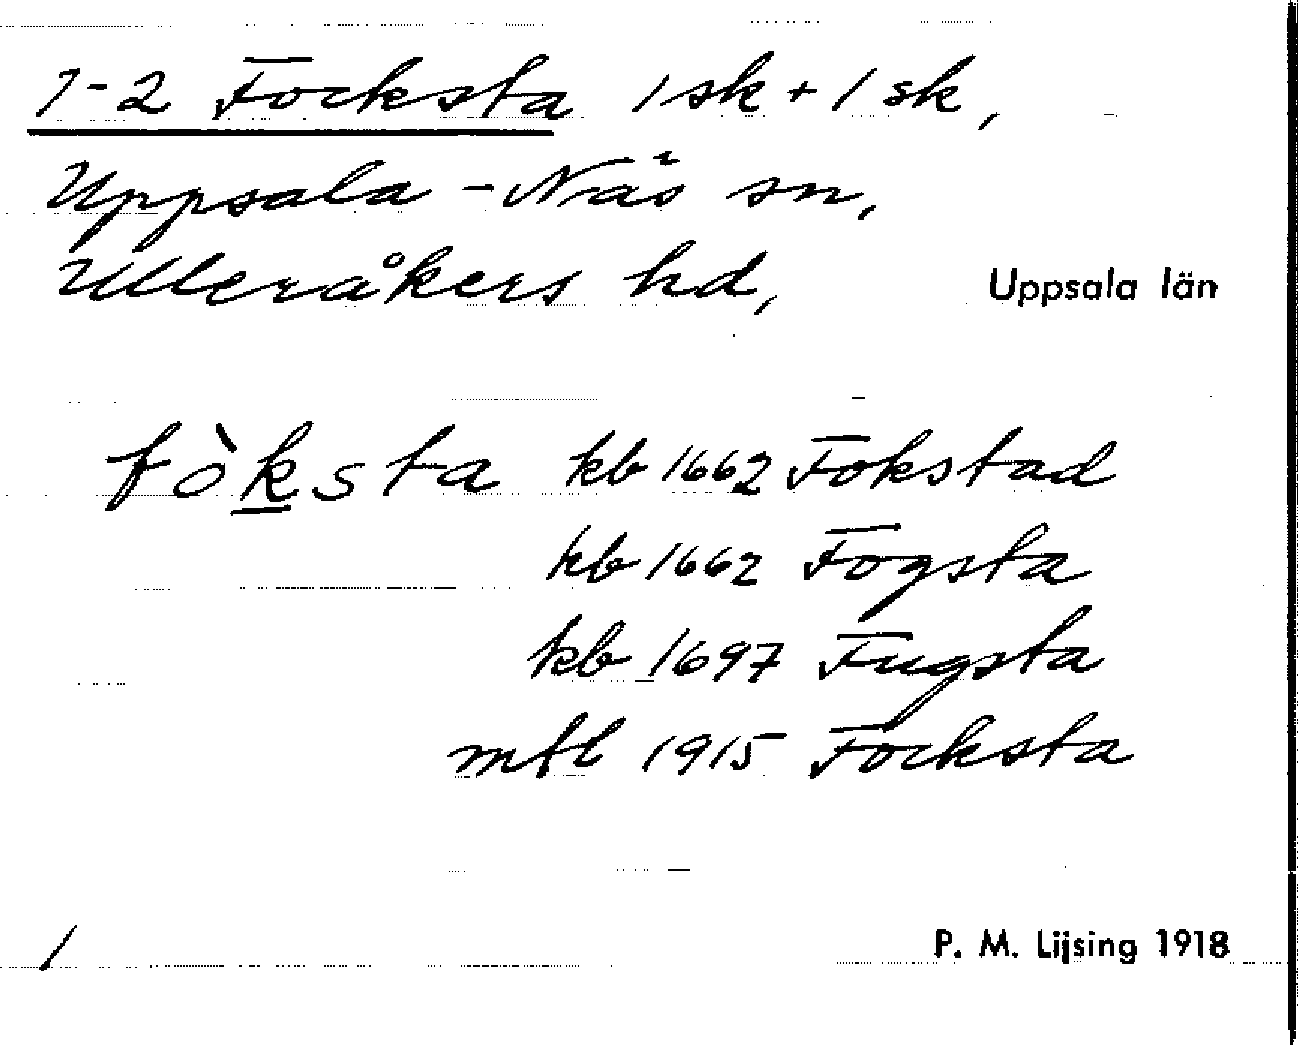 1-2 Focksta 1 sk + 1 sk,
Uppsala-Näs sn,
Ulleråkers hd, Uppsala län
fòksta kb 1662 Fokstad
kb 1662 Fogsta
kb 1697 Fugsta
mtl 1915 Focksta
1 P. M. Lijsing 1918